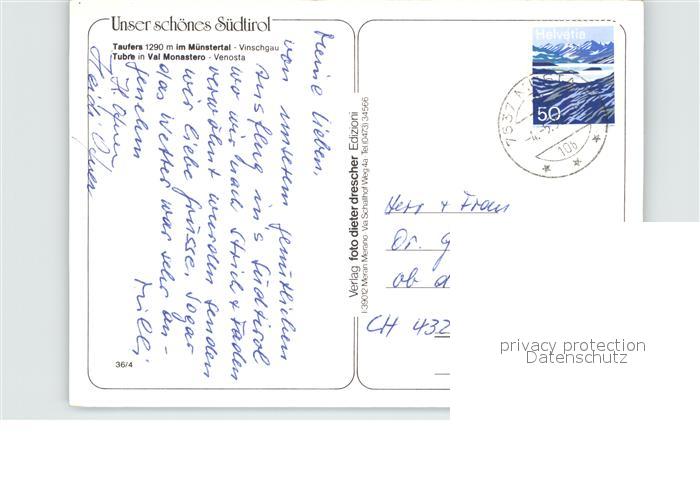 Unser schönes Südtirol
Taufers 1290 m im Münstertal - Vinschgau
Tubre in Val Monastero - Venosta
Meine Lieben,
von unserem gemütlichen
Ausflug in's Südtirol
wo wir nach Strich + Faden
verwöhnt wurden senden
wir liebe Grüsse. Sogar
das Wetter war sehr an-
genehm
Milli
36/4
Verlag foto dieter drescher Edizioni
I-39012 Meran Merano · Via Schafhof Weg 4a · Tel. 0473/34566
Helvetia
50
7537 MÜST
10b
Herr + Frau
Dr. G
ob d
CH 432
privacy protection
Datenschutz